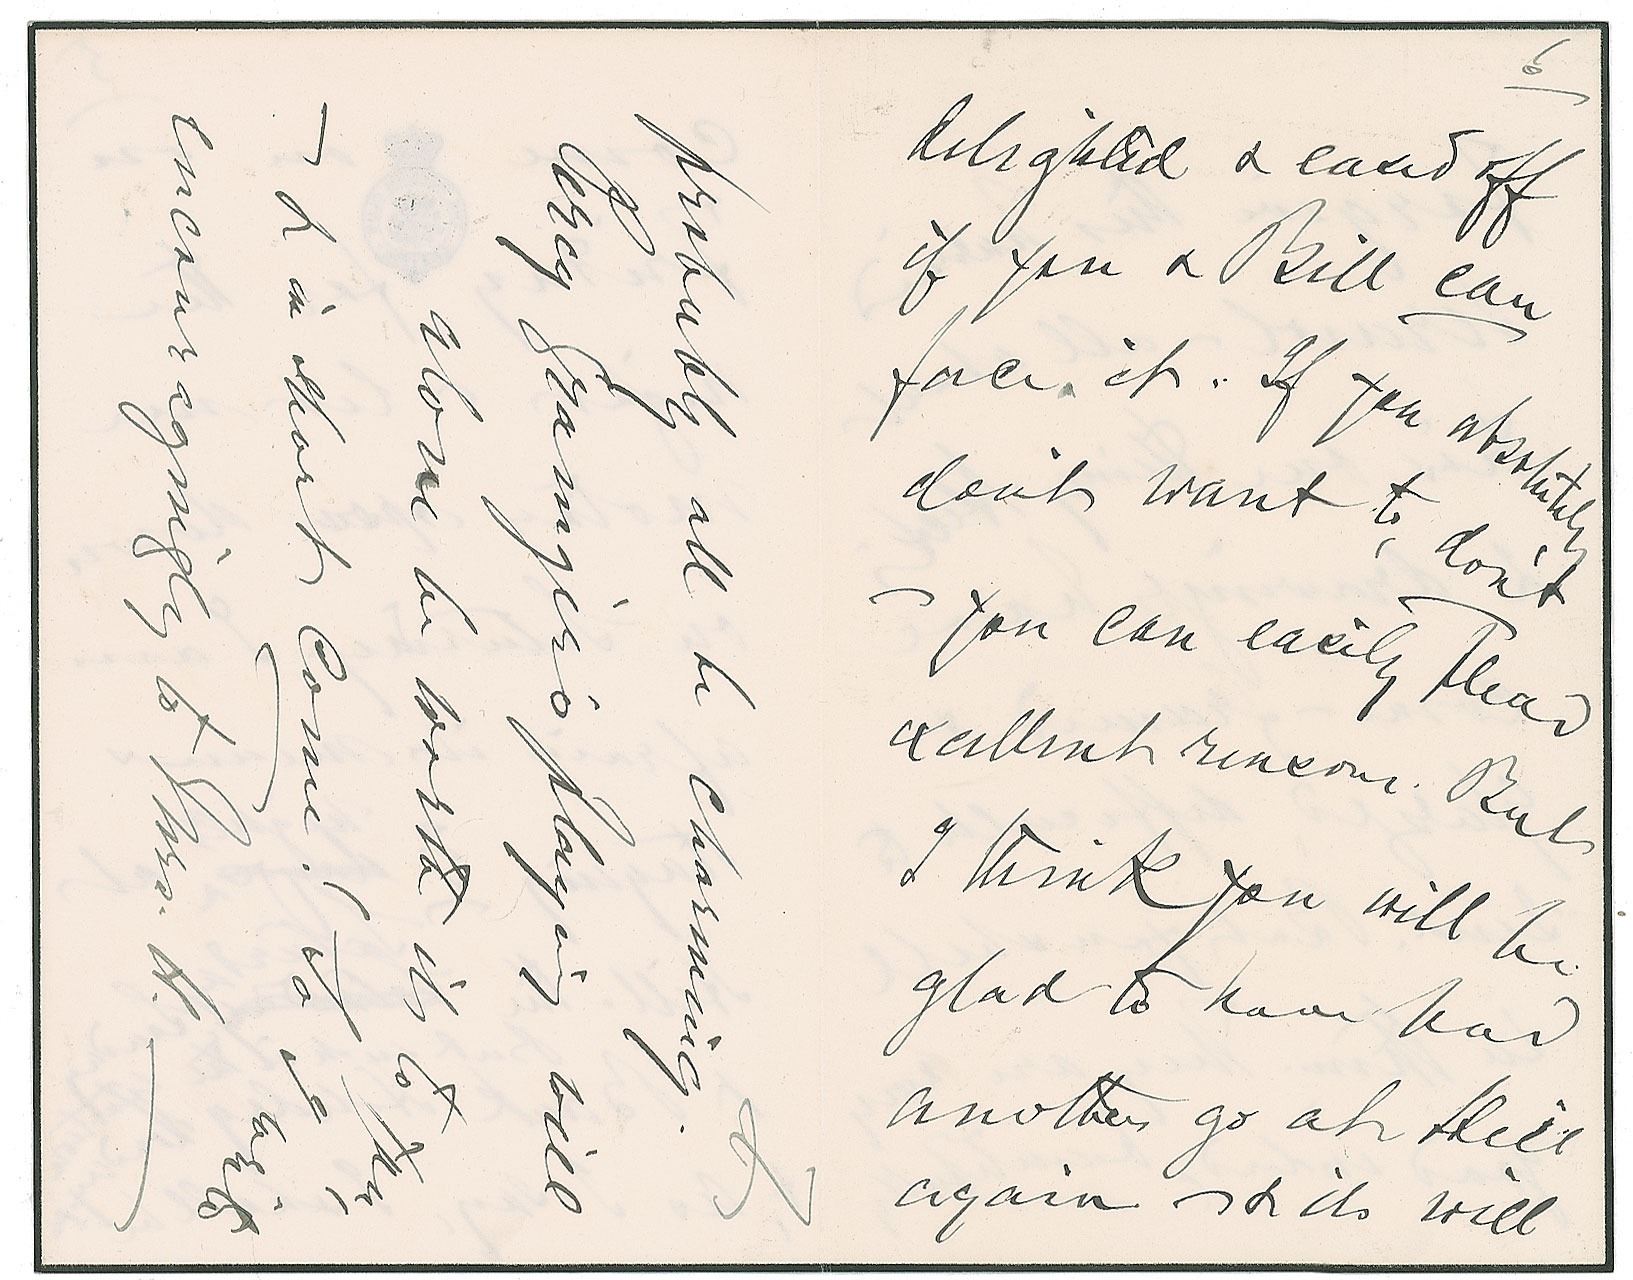 6
delighted & eased off
if you & Bill can
face it. If you absolutely
don't want to, don't
you can easily plead
excellent reasons. But
I think you will be
glad to have had
another go at
again & it will
probably all be charming.
Percy Grainger's playing will
alone be worth it to you
— & in short Come! & to write
encouragingly to Mrs. H.